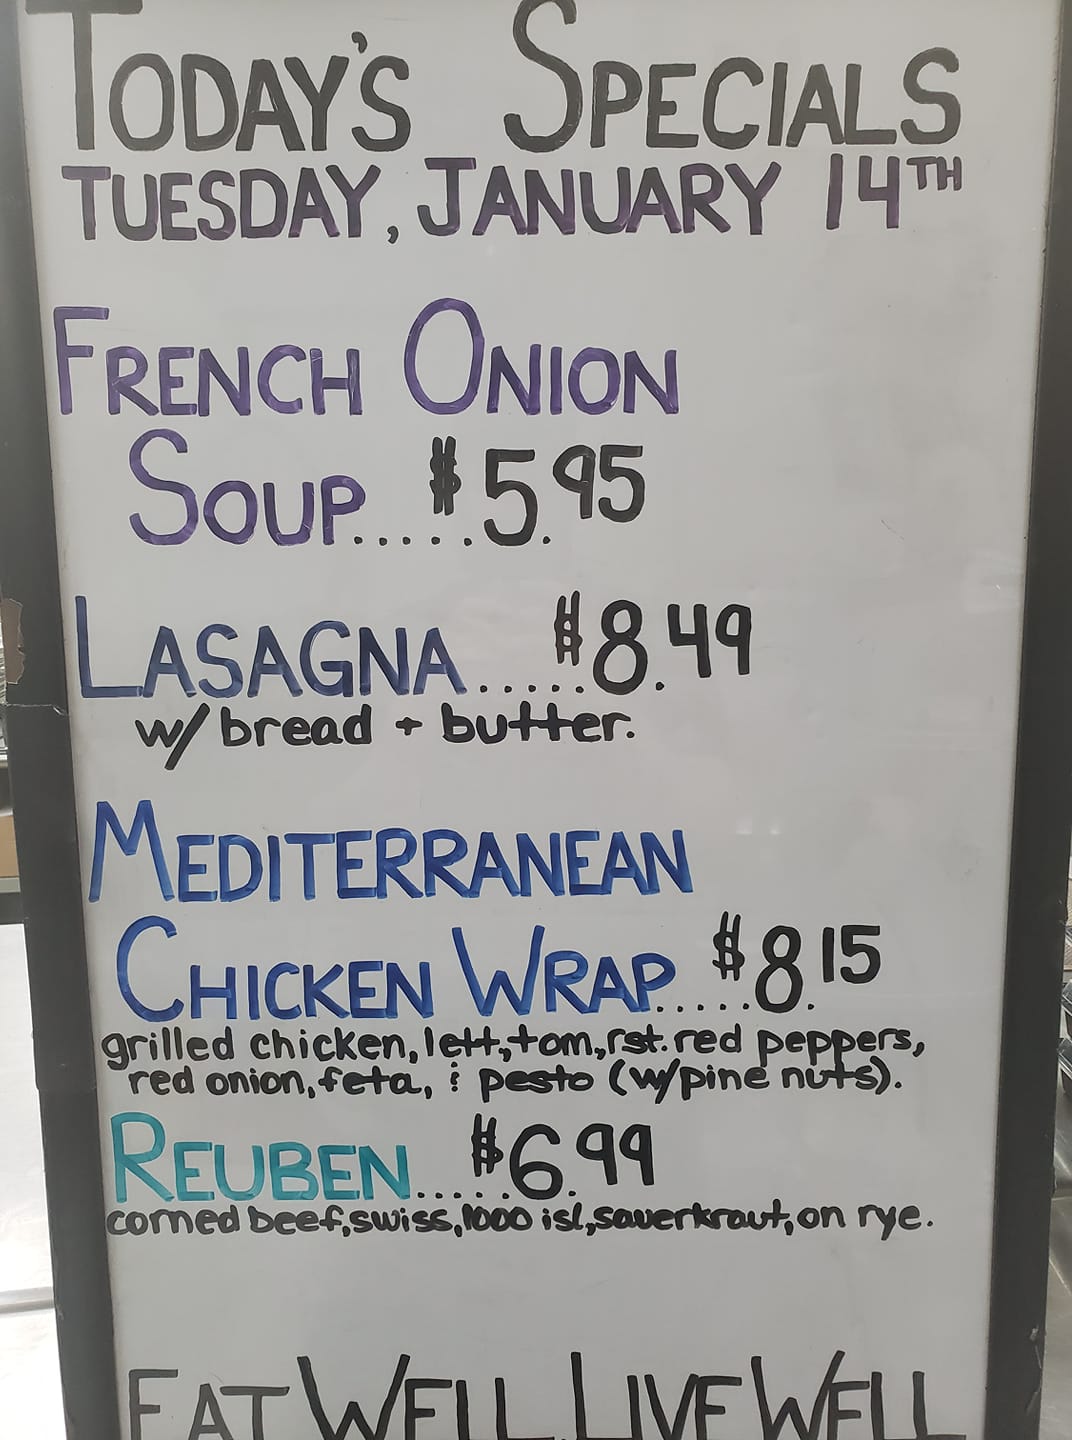 TODAY'S SPECIALS
TUESDAY, JANUARY 14TH
FRENCH ONION
SOUP.....$5.95
LASAGNA.....$8.49
w/ bread + butter.
MEDITERRANEAN
CHICKEN WRAP.....$8.15
grilled chicken, lett, tom, rst. red peppers,
red onion, feta, & pesto (w/ pine nuts).
REUBEN.....$6.99
corned beef, swiss, 1000 isl, sauerkraut, on rye.
EAT WELL, LIVE WELL